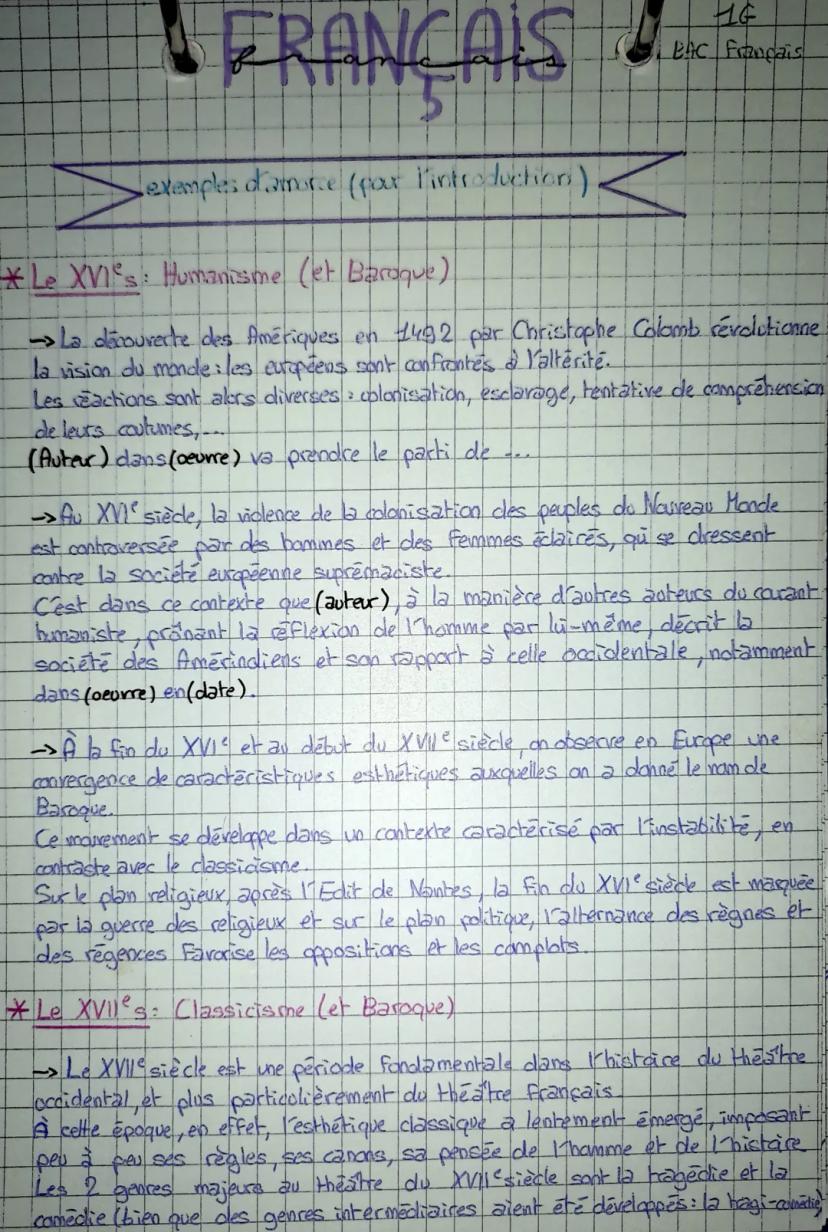 FRANÇAIS
français
1G
BAC Français
exemples d'amorce (pour l'introduction)
* Le XVIe s : Humanisme (et Baroque)
→ La découverte des Amériques en 1492 par Christophe Colomb révolutionne
la vision du monde : les européens sont confrontés à l'altérité.
Les réactions sont alors diverses : colonisation, esclavage, tentative de compréhension
de leurs coutumes,...
(Auteur) dans (oeuvre) va prendre le parti de ...
→ Au XVIe siècle, la violence de la colonisation des peuples du Nouveau Monde
est controversée par des hommes et des femmes éclairés, qui se dressent
contre la société européenne suprémaciste.
C'est dans ce contexte que (auteur), à la manière d'autres auteurs du courant
humaniste, prônant la réflexion de l'homme par lui-même, décrit la
société des Amérindiens et son rapport à celle occidentale, notamment
dans (oeuvre) en (date).
→ À la fin du XVIe et au début du XVIIe siècle, on observe en Europe une
convergence de caractéristiques esthétiques auxquelles on a donné le nom de
Baroque.
Ce mouvement se développe dans un contexte caractérisé par l'instabilité, en
contraste avec le classicisme.
Sur le plan religieux, après l'Edit de Nantes, la fin du XVIe siècle est marquée
par la guerre des religieux et sur le plan politique, l'alternance des règnes et
des régences favorise les oppositions et les complots.
* Le XVIIe s : Classicisme (et Baroque)
→ Le XVIIe siècle est une période fondamentale dans l'histoire du théâtre
occidental, et plus particulièrement du théâtre français.
À cette époque, en effet, l'esthétique classique a lentement émergé, imposant
peu à peu ses règles, ses canons, sa pensée de l'homme et de l'histoire
Les 2 genres majeurs au théâtre du XVIIe siècle sont la tragédie et la
comédie (bien que des genres intermédiaires aient été développés : la tragi-comédie,